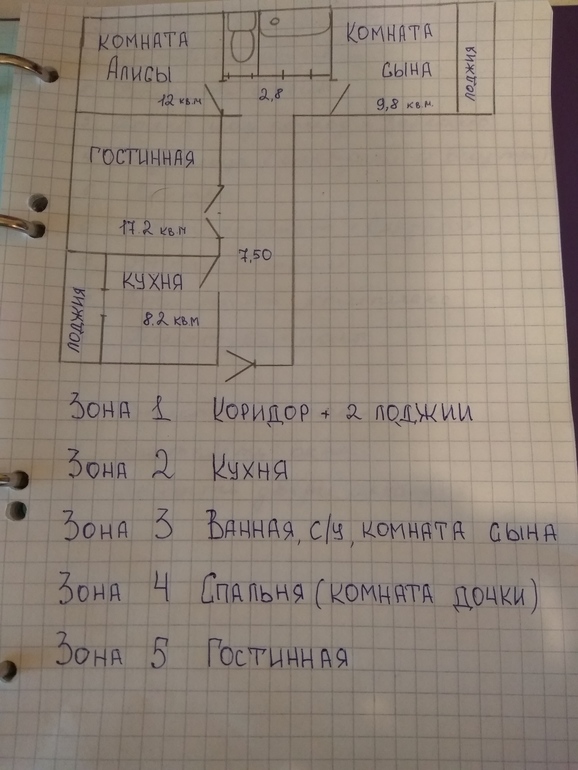 КОМНАТА
АЛИСЫ
12 кв.м
2,8
КОМНАТА
СЫНА
9,8 кв.м.
ЛОДЖИЯ
ГОСТИННАЯ
17.2 кв.м
7,50
КУХНЯ
8.2 кв.м
ЛОДЖИЯ
Зона 1 Коридор + 2 лоджии
Зона 2 Кухня
Зона 3 Ванная, с/у, комната сына
Зона 4 Спальня (комната дочки)
Зона 5 Гостинная